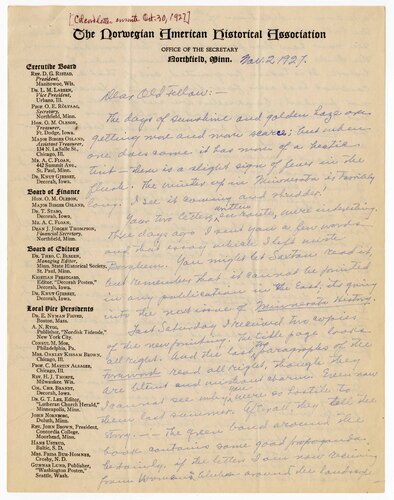 [Calendar ... Oct. 30, 1927]
The Norwegian American Historical Association
OFFICE OF THE SECRETARY
Northfield, Minn.
Nov. 2, 1927.
Executive Board
REV. D. G. RISTAD,
President,
Manitowoc, Wis.
DR. L. M. LARSEN,
Vice President,
Urbana, Ill.
PROF. O. E. RÖLVAAG,
Secretary,
Northfield, Minn.
HON. O. M. OLESON,
Treasurer,
Ft. Dodge, Iowa.
MAJOR BIRGER OSLAND,
Assistant Treasurer,
134 N. La Salle St.,
Chicago, Ill.
MR. A. C. FLOAN,
442 Summit Ave.,
St. Paul, Minn.
DR. KNUT GJERSET,
Decorah, Iowa.
Board of Finance
HON. O. M. OLESON,
MAJOR BIRGER OSLAND,
DR. T. STABO,
Decorah, Iowa.
MR. A. C. FLOAN,
DEAN J. JØRGEN THOMPSON,
Financial Secretary,
Northfield, Minn.
Board of Editors
DR. THEO. C. BLEGEN,
Managing Editor,
Minn. State Historical Society,
St. Paul, Minn.
KRISTIAN PRESTGARD,
Editor, "Decorah Posten,"
Decorah, Iowa.
DR. KNUT GJERSET,
Decorah, Iowa.
Local Vice Presidents
Boston, Mass.
A. N. RYGG,
Publisher, "Nordisk Tidende,"
New York City.
Philadelphia, Pa.
MRS. OAKLEY KISSAM BROWN,
Chicago, Ill.
Chicago, Ill.
REV. H. J. THORPE,
Milwaukee, Wis.
CHR. BRANDT,
Decorah, Iowa.
DR. G. T. LEE, Editor
"Lutheran Church Herald,"
Minneapolis, Minn.
Duluth, Minn.
REV. JOHN BROWN, President,
Concordia College,
Moorhead, Minn.
Crosby, N. D.
GUNNAR LUND, Publisher,
"Washington Posten,"
Seattle, Wash.
Dear Old Fellow:—
The days of sunshine and golden haze are
getting more and more scarce; but when
one does come it has more of a hectic
tint — there is a slight sign of fever in the
flush. The winter up in Minnesota is terribly
long. I see it coming and shudder!
Your two letters, en route, were
Three days ago I sent you a few words
and that essay which I left
You might let read it,
but remember that it cannot be printed
in any publication in the East, its going
into the next issue of Minnesota History.
Last Saturday I received two copies
of the new printing. The title page looks
all right. And the last paragraphs of the
Foreword read all right, though they
are blunt and without charm. Even now
I cannot see why were so hostile to
them last summer. After all, they tell the
story. — The green band around the
book contains some good propaganda.
Certainly, if the letters I am now receiving
from Women's Clubs around the